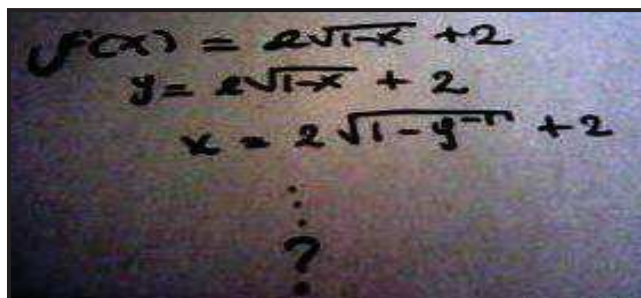 f(x) = 2√1-x + 2
y = 2√1-x + 2
x = 2√1-y⁻ⁿ + 2
⋮
?